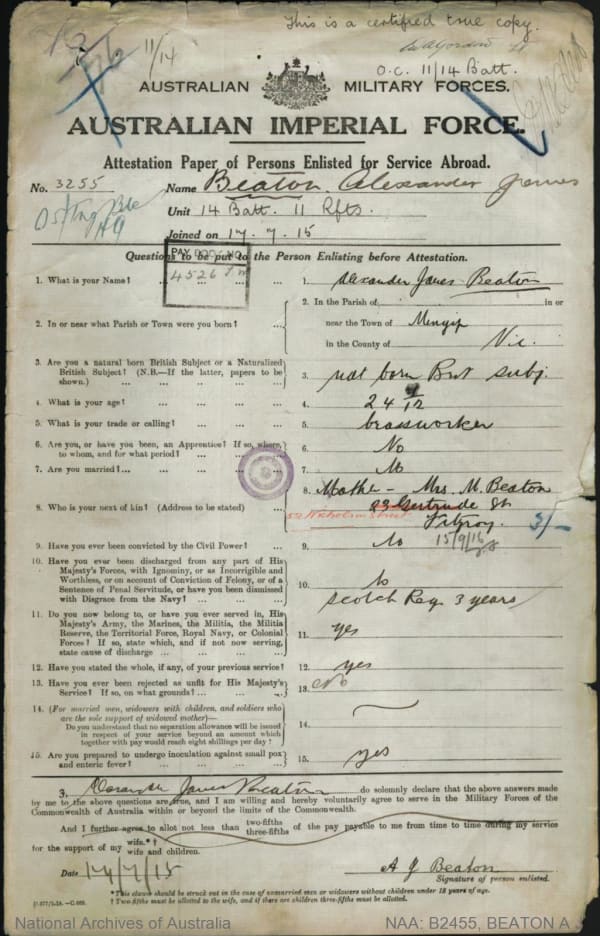 This is a certified true copy.
11/14
O.C. 11/14 Batt.
AUSTRALIAN MILITARY FORCES.
AUSTRALIAN IMPERIAL FORCE.
Attestation Paper of Persons Enlisted for Service Abroad.
No. 3255 Name Beaton, Alexander James
Unit 14 Batt. 11 Rfts.
Joined on 17.7.15
Questions to be put to the Person Enlisting before Attestation.
PAY BOOK NO
4526
1. What is your Name? ... 1. Alexander James Beaton
2. In or near what Parish or Town were you born? ... 2. In the Parish of in or
near the Town of Minyip
in the County of Vic.
3. Are you a natural born British Subject or a Naturalized
British Subject? (N.B.—If the latter, papers to be
shown.) ... 3. nat born Brit subj.
4. What is your age? ... 4. 24
5. What is your trade or calling? ... 5. brassworker
6. Are you, or have you been, an Apprentice? If so, where,
to whom, and for what period? ... 6. No
7. Are you married? ... 7. No
8. Who is your next of kin? (Address to be stated) ... 8. Mother - Mrs. M. Beaton
83 Gertrude St
Nicholson Street
Fitzroy. 3/-
9. Have you ever been convicted by the Civil Power? ... 9. No 15/9/16
10. Have you ever been discharged from any part of His
Majesty's Forces, with Ignominy, or as Incorrigible and
Worthless, or on account of Conviction of Felony, or of a
Sentence of Penal Servitude, or have you been dismissed
with Disgrace from the Navy? ... 10. No
Scotch Reg. 3 years
11. Do you now belong to, or have you ever served in, His
Majesty's Army, the Marines, the Militia, the Militia
Reserve, the Territorial Force, Royal Navy, or Colonial
Forces? If so, state which, and if not now serving,
state cause of discharge ... 11. yes
12. Have you stated the whole, if any, of your previous service? 12. yes
13. Have you ever been rejected as unfit for His Majesty's
Service? If so, on what grounds? ... 13. No
14. (For married men, widowers with children, and soldiers who
are the sole support of widowed mother)—
Do you understand that no separation allowance will be issued
in respect of your service beyond an amount which
together with pay would reach eight shillings per day? 14.
15. Are you prepared to undergo inoculation against small pox
and enteric fever? ... 15. yes
3. Alexander James Beaton do solemnly declare that the above answers made
by me to the above questions are true, and I am willing and hereby voluntarily agree to serve in the Military Forces of the
Commonwealth of Australia within or beyond the limits of the Commonwealth.
And I further agree to allot not less than two-fifths three-fifths of the pay payable to me from time to time during my service
for the support of my wife.*†
wife and children.
Date 17/7/15 A J Beaton
Signature of person enlisted.
*This clause should be struck out in the case of unmarried men or widowers without children under 18 years of age.
†Two-fifths must be allotted to the wife, and if there are children three-fifths must be allotted.
National Archives of Australia NAA: B2455, BEATON A J